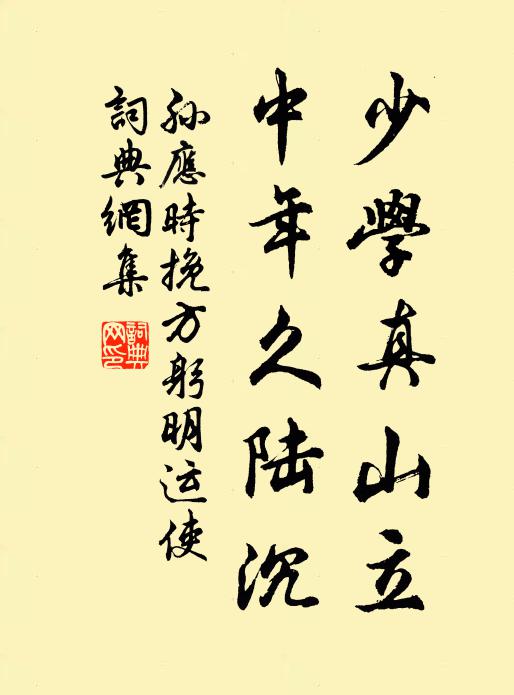 少學真山立
中年久陆沉
孙應時挽方躬明运使
詞典網集
詞典網印